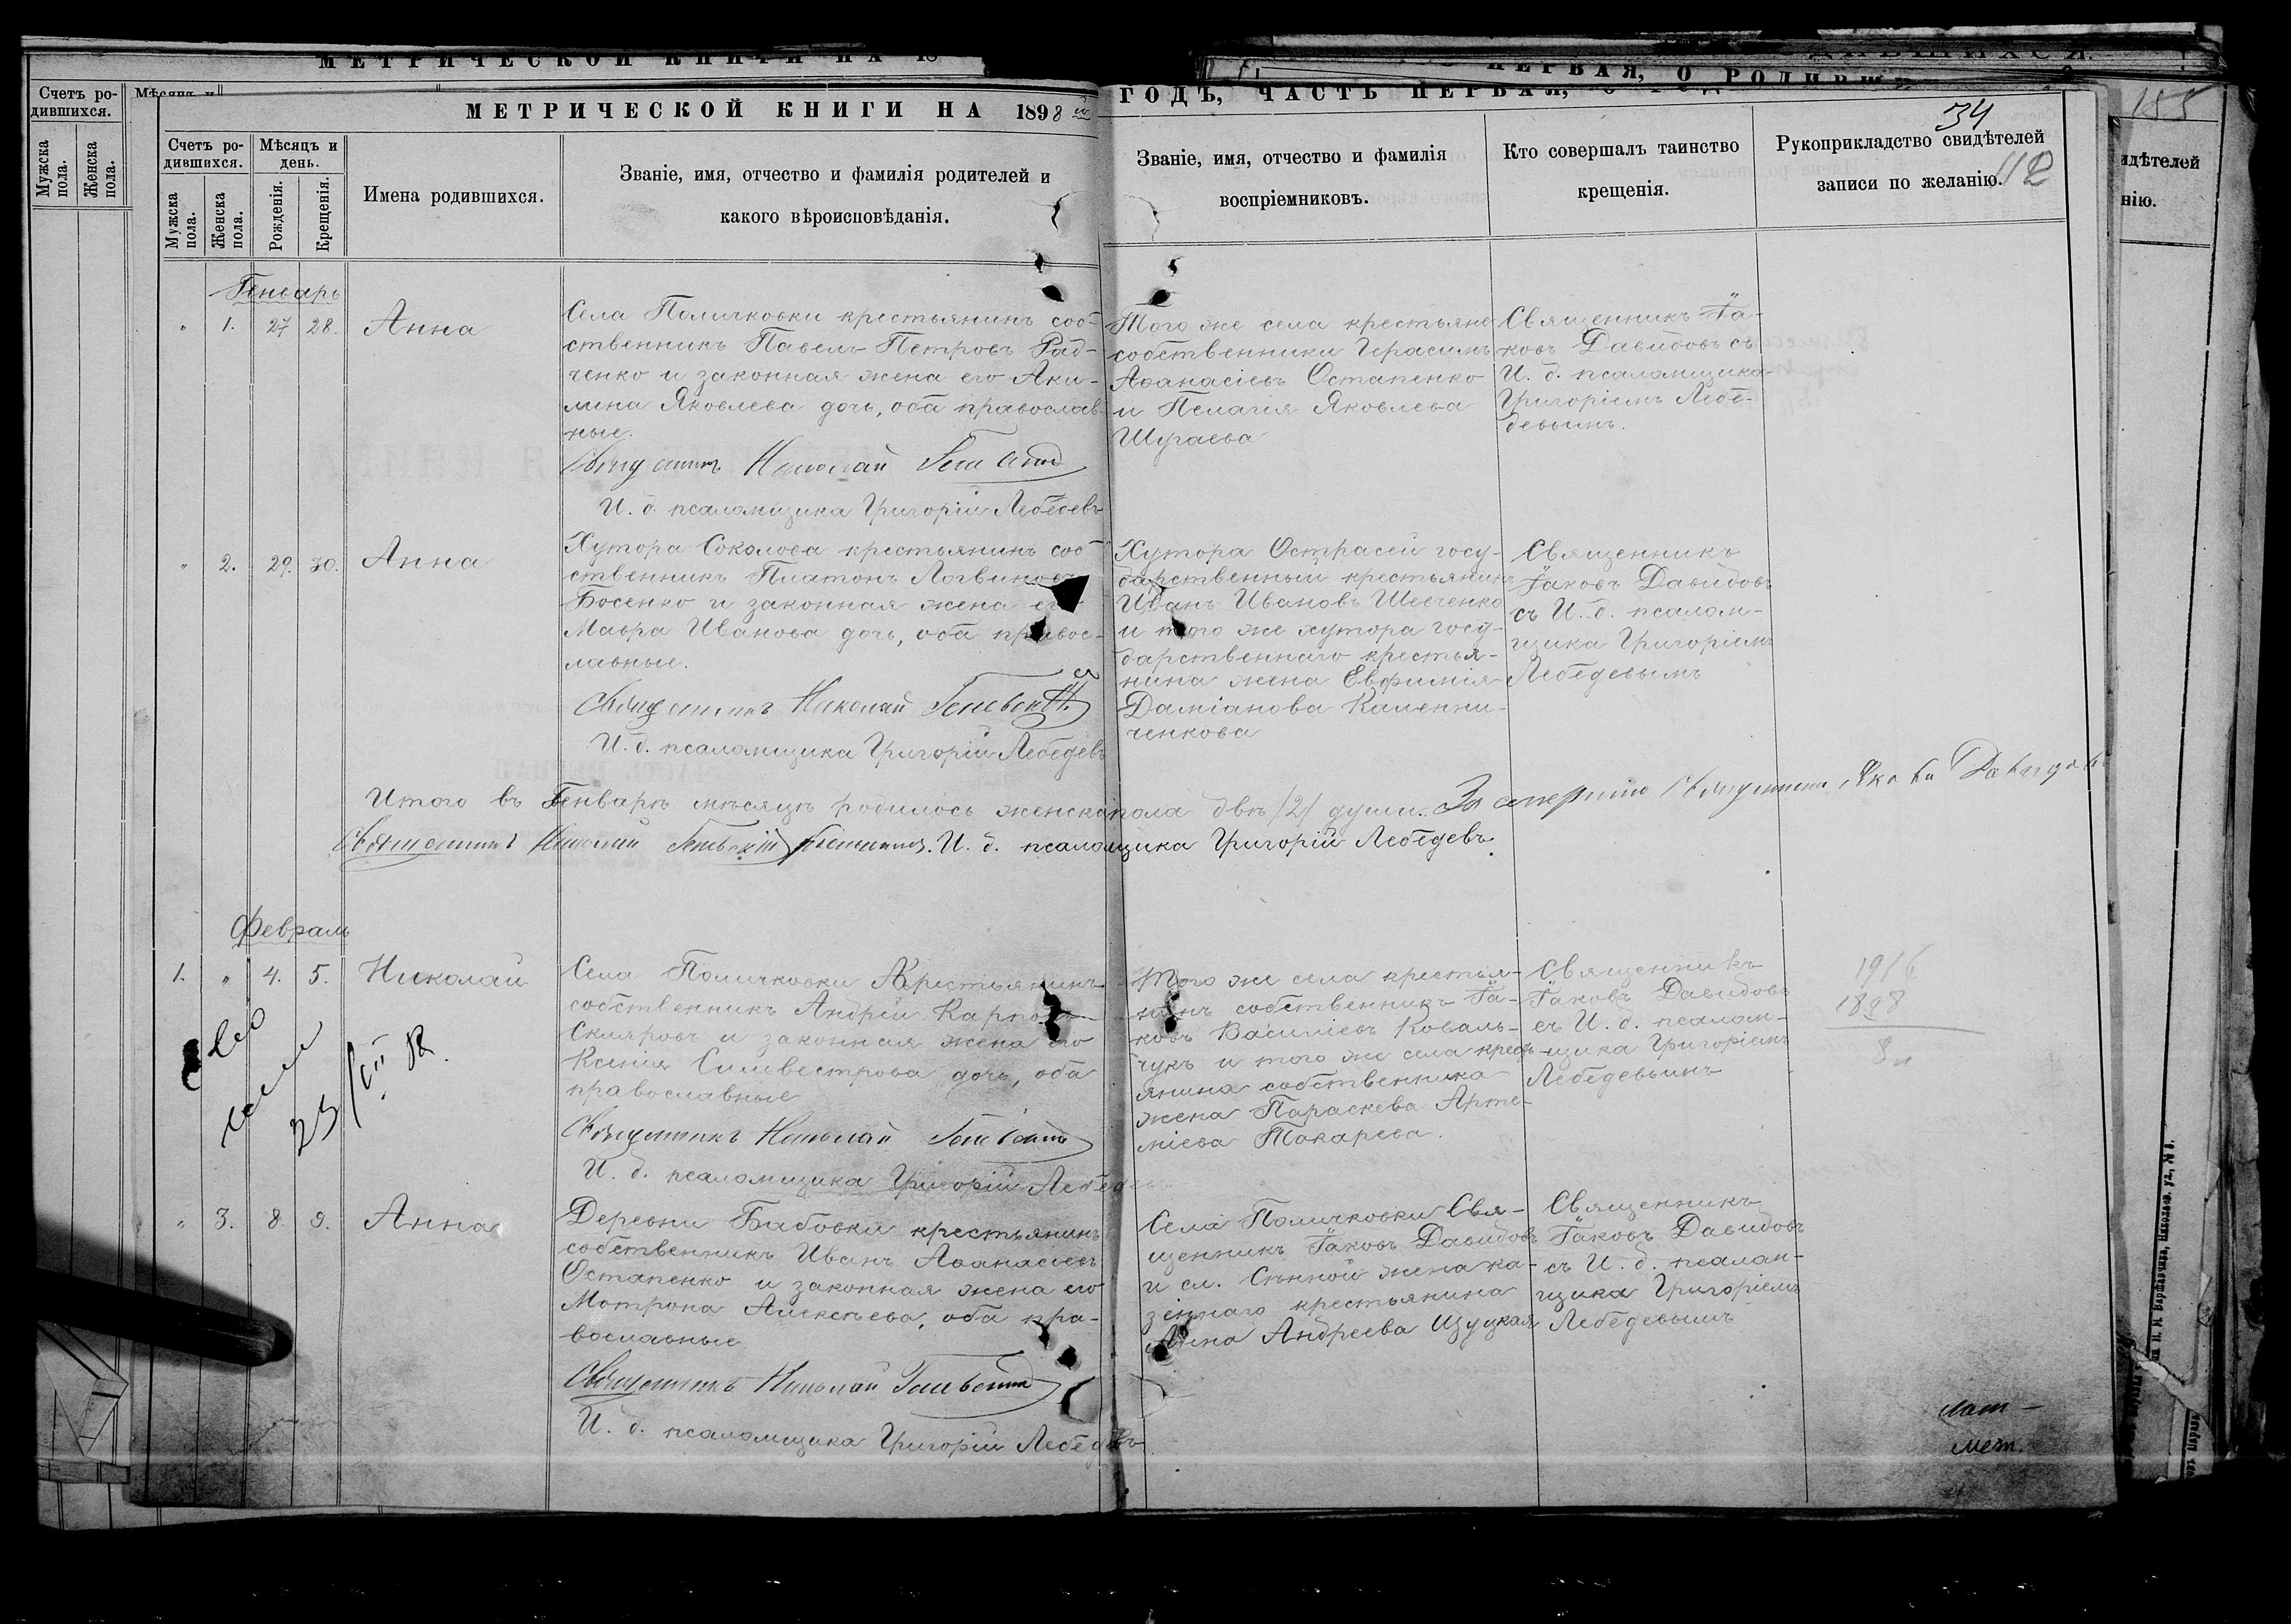 МЕТРИЧЕСКОЙ КНИГИ НА 18
ПЕРВАЯ, О РОДИВШИ
Счетъ ро-
дившихся.
Мужска
пола.
Женска
пола.
185
идѣтелей
нію.
МЕТРИЧЕСКОЙ КНИГИ НА 1898 й
ГОДЪ, ЧАСТЬ ПЕРВАЯ,
34
112
Счетъ ро-
дившихся.
Мужска
пола.
Женска
пола.
Мѣсяцъ и
день.
Рожденія.
Крещенія.
Имена родившихся.
Званіе, имя, отчество и фамилія родителей и
какого вѣроисповѣданія.
Званіе, имя, отчество и фамилія
воспріемниковъ.
Кто совершалъ таинство
крещенія.
Рукоприкладство свидѣтелей
записи по желанію.
Генварь
" 1. 27 28. Анна
Села Поличковки крестьянинъ соб-
ственникъ Павелъ Петровъ Рад-
ченко и законная жена его Аки-
лина Яковлева дочь, оба православ-
ные.
Священникъ Николай
И. д. псаломщика Григорій Лебедевъ
Того же села крестьяне
собственники Герасимъ
Аѳанасіевъ Остапенко
и Пелагія Яковлева
Шугаева
Священникъ Іа-
ковъ Давидовъ съ
И. д. псаломщика
Григоріемъ Лебе-
девымъ.
" 2. 29. 30. Анна
Хутора Соколова крестьянинъ соб-
ственникъ Платонъ Логвиновъ
Босенко и законная жена его
Мавра Иванова дочь, оба правос-
лавные.
Священникъ Николай
И. д. псаломщика Григорій Лебедевъ
Хутора Острасей госу-
дарственный крестьянинъ
Иванъ Ивановъ Шевченко
и того же хутора госу-
дарственнаго крестья-
нина жена Евфимія
Даміанова Каленни-
ченкова
Священникъ
Іаковъ Давидовъ
съ И. д. псалом-
щика Григоріемъ
Лебедевымъ
Итого въ Генварѣ мѣсяцѣ родилось женска пола двѣ /2/ души. За смертію Священника Якова Давидова
Священникъ Николай И. д. псаломщика Григорій Лебедевъ.
Февраль
1. " 4. 5. Николай
Села Поличковки Крестьянинъ
собственникъ Андрей Карповъ
Скляровъ и законная жена его
Ксенія Сильвестрова дочь, оба
православные
Священникъ Николай
И. д. псаломщика Григорій Лебедевъ
Того же села крестья-
нинъ собственникъ Іа-
ковъ Василіевъ Коваль-
чукъ и того же села кресть-
янина собственника
жена Параскева Арте-
міева Токарева.
Священникъ
Іаковъ Давидовъ
съ И. д. псалом-
щика Григоріемъ
Лебедевымъ
1916
1898
" 3. 8. 9. Анна
Деревни Бабовки крестьянинъ
собственникъ Иванъ Аѳанасіевъ
Остапенко и законная жена его
Мотрона Алексѣева, оба пра-
вославные
Священникъ Николай
И. д. псаломщика Григорій Лебедевъ
Села Поличковки Свя-
щенникъ Іаковъ Давидовъ
и сл. Сѣнной жена ка-
зеннаго крестьянина
Анна Андреева Щуцкая
Священникъ
Іаковъ Давидовъ
съ И. д. псалом-
щика Григоріемъ
Лебедевымъ